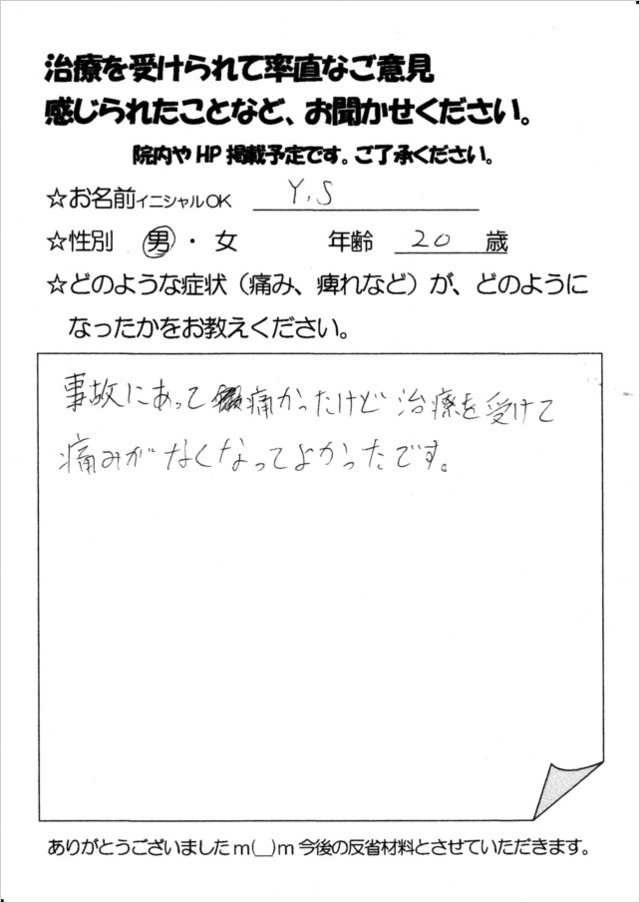 治療を受けられて率直なご意見
感じられたことなど、お聞かせください。
院内やHP掲載予定です。ご了承ください。
☆お名前イニシャルOK Y.S
☆性別 男・女 年齢 20 歳
☆どのような症状（痛み、痺れなど）が、どのように
なったかをお教えください。
事故にあって痛かったけど治療を受けて
痛みがなくなってよかったです。
ありがとうございましたm(__)m今後の反省材料とさせていただきます。